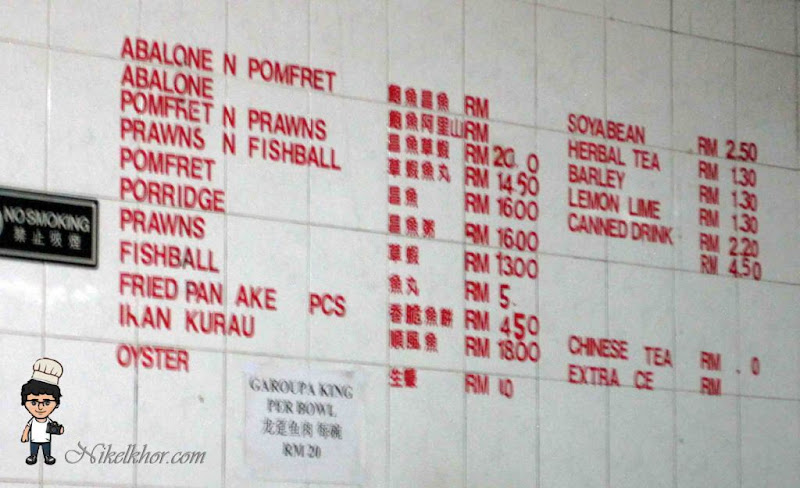 ABALONE N POMFRET 鮑魚昌魚 RM
ABALONE 鮑魚阿里山 RM
POMFRET N PRAWNS 昌魚草蝦 RM 20. 0
PRAWNS N FISHBALL 草蝦魚丸 RM 14.50
POMFRET 昌魚 RM 16.00
PORRIDGE 昌魚粥 RM 16.00
PRAWNS 草蝦 RM 13.00
FISHBALL 魚丸 RM 5.
FRIED PAN AKE PCS 香脆魚餅 RM 4.50
IKAN KURAU 順風魚 RM 18.00
OYSTER 生蠔 RM
SOYABEAN RM 2.50
HERBAL TEA RM 1.30
BARLEY RM 1.30
LEMON LIME RM 1.30
CANNED DRINK RM 2.20
RM 4.50
CHINESE TEA RM . 0
EXTRA CE RM
NO SMOKING
禁止吸煙
GAROUPA KING
PER BOWL
龙趸鱼肉 每碗
RM 20
Nikelkhor.com